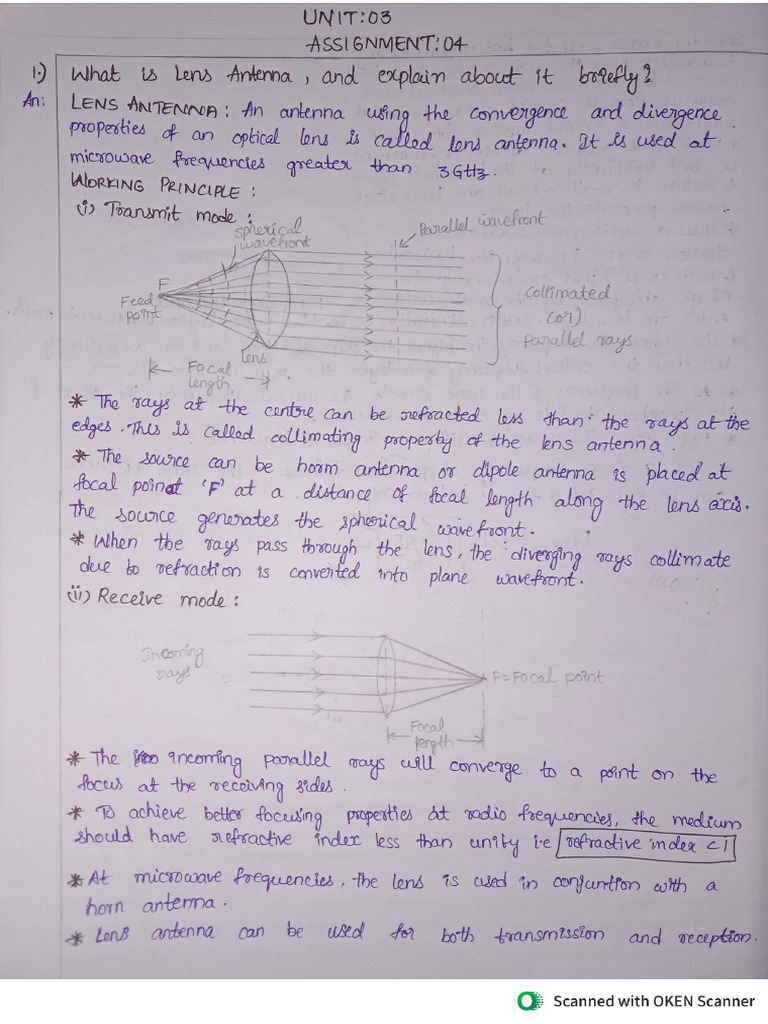 UNIT:03
ASSIGNMENT:04
1.) What is Lens Antenna, and explain about it briefly?
An: LENS ANTENNA: An antenna using the convergence and divergence
properties of an optical lens is called lens antenna. It is used at
microwave frequencies greater than 3GHz.
WORKING PRINCIPLE:
(i) Transmit mode:
spherical
wavefront
Parallel wavefront
F
Feed
point
Collimated
(or)
Parallel rays
lens
Focal
length
* The rays at the centre can be refracted less than the rays at the
edges. This is called collimating property of the lens antenna.
* The source can be horm antenna or dipole antenna is placed at
focal point 'F' at a distance of focal length along the lens axis.
The source generates the spherical wavefront.
* When the rays pass through the lens, the diverging rays collimate
due to refraction is converted into plane wavefront.
(ii) Receive mode:
Incoming
rays
F=Focal point
Focal
length
* The incoming parallel rays will converge to a point on the
focus at the receiving sides.
* To achieve better focusing properties at radio frequencies, the medium
should have refractive index less than unity i.e refractive index <1
* At microwave frequencies, the lens is used in conjuntion with a
horn antenna.
* Lens antenna can be used for both transmission and reception.
Scanned with OKEN Scanner